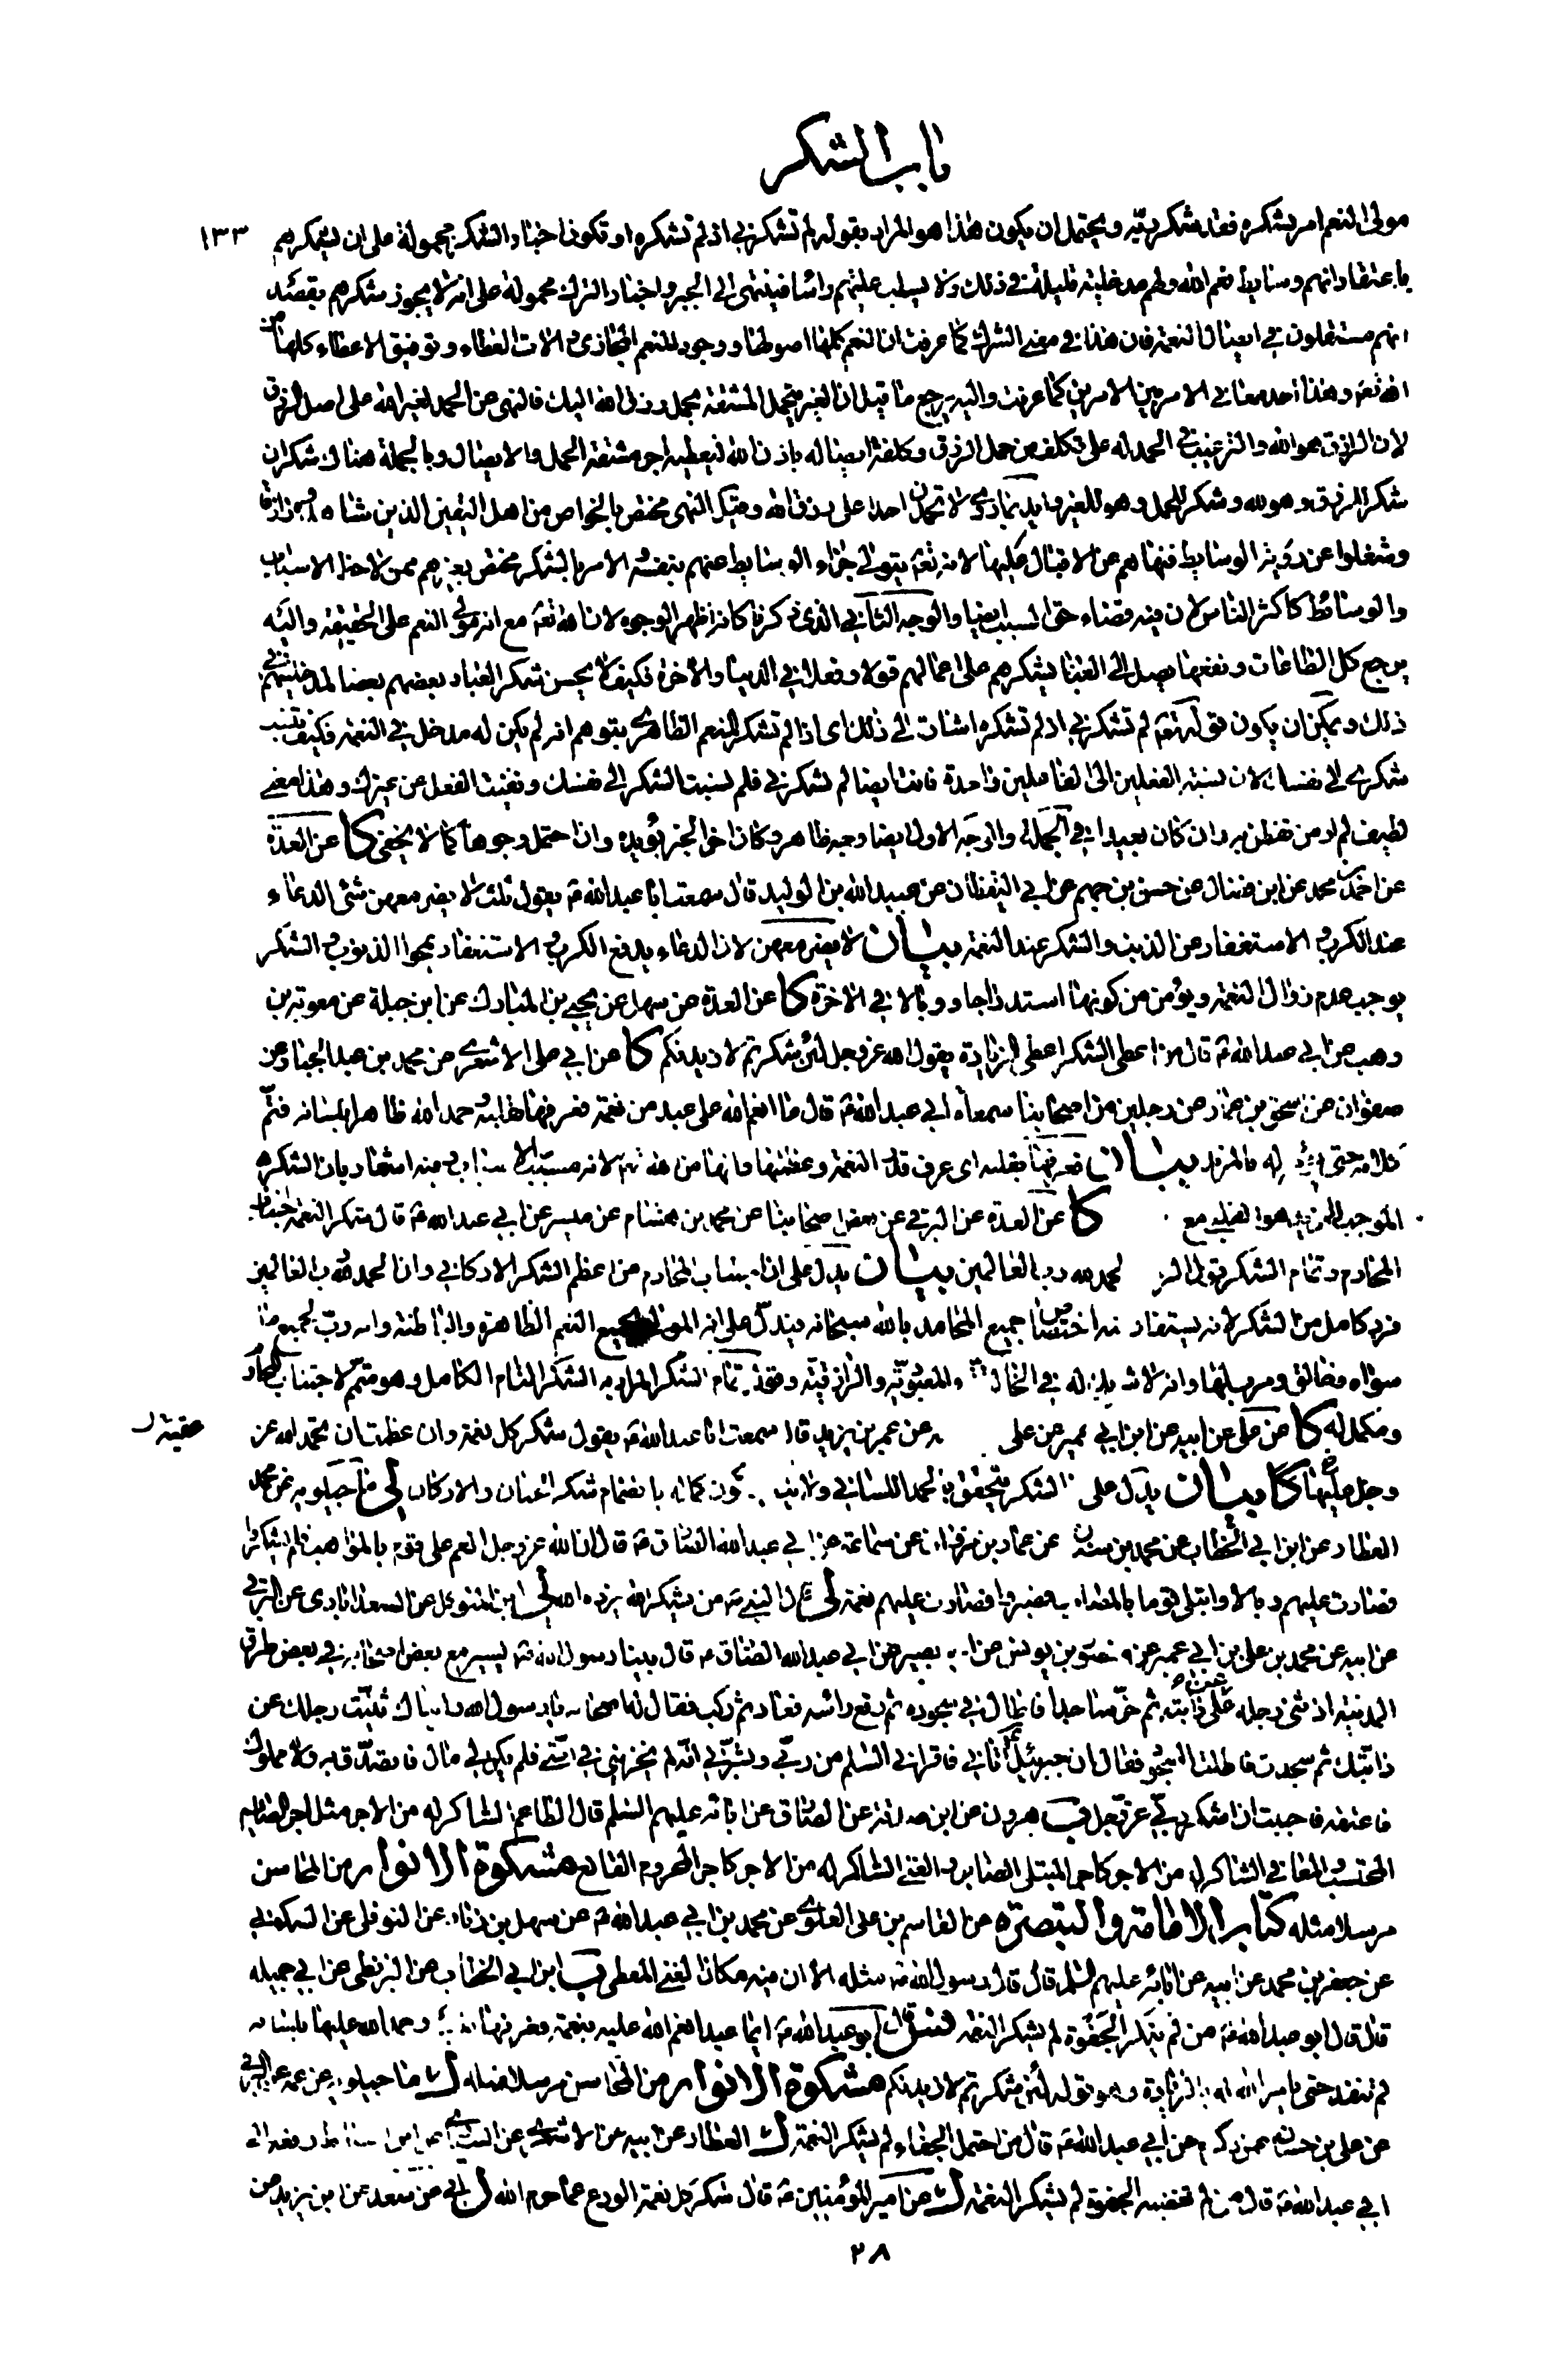 باب الشكر
١٣٣
مولى النعم امر بشكره فقد شكر ربّه ويحتمل ان يكون هذا هو المراد بقوله لم تشكرني اذ لم تشكره او تكون اخبار الشكر محمولة على ان يشكرهم
باعتقاد انهم وسايط نعم الله ولهم مدخلية قليلة في ذلك ولا يسلب عليتهم راسا فينتهى الى الجبر واخبار الترك محمولة على انه لا يجوز شكرهم بقصد
انهم مستقلون في ايصال النعمة فان هذا في معنى الشرك كما عرفت ان النعم كلها اصولها ووجود المنعم المجازى والات العطاء وتوفيق الاعطاء كلها من
الله تعة وهذا احد معاني الامر بين الامرين كما عرفت واليه يرجع ما قيل ان الغير يتحمل المشقة بحمل رزق الله اليك فالنهى عن الحمد لغير الله على اصل الرزق
لان الرازق هو الله والترغيب في الحمد له على تكلف من حمل الرزق وكلفة ايصاله باذن الله ليعطيه اجر مشقة الحمل والايصال وبالجملة هناك شكران
شكر للرزق وهو لله وشكر للحمل وهو للغير وايد بما روى لا تحمدن احدا على رزق الله وقيل النهى مختص بالخواص من اهل اليقين الذين شاهدوه رازقا
وشغلوا عن رؤية الوسايط فنهاهم عن الاقبال عليها لانه تعة يتولى جزاء الوسايط عنهم بنفسه والامر بالشكر مختص بغيرهم ممن لاحظ الاسباب
والوسائط كاكثر الناس لان فيه قضاء حق السبب ايضا والوجه الثاني الذى ذكرنا كانه اظهر الوجوه لان الله تعة مع انه مولى النعم على الحقيقة واليه
يرجع كل الطاعات ونفعها يصل الى العباد يشكرهم على اعمالهم قولا وفعلا في الدنيا والاخرة فكيف لا يحسن شكر العباد بعضهم بعضا لمدخليتهم في
ذلك ويمكن ان يكون قوله تعة لم تشكرني اذ لم تشكره اشارة الى ذلك اى اذا لم تشكر المنعم الظاهرى بتوهم انه لم يكن له مدخل في النعمة فكيف تنسب
شكرى الى نفسك لان نسبة الفعلين الى الفاعلين واحدة فانت ايضا لم تشكرني فلم نسبت الشكر الى نفسك ونفيت الفعل عن غيرك وهذا معنى
لطيف لم ار من تفطن به وان كان بعيدا في الجملة والوجه الاول ايضا وجه ظاهر وكان اخر الخبر يؤيده وان احتمل وجوها كما لا يخفى كا عن العدة
عن احمد بن محمد عن ابن فضال عن حسن بن جهم عن ابي اليقظان عن عبيد الله بن الوليد قال سمعت ابا عبد الله ع يقول ثلث لا يضر معهن شئ الدعاء
عند الكرب والاستغفار عند الذنب والشكر عند النعمة بيان لا يضر معهن لان الدعاء يدفع الكرب والاستغفار يمحوا الذنوب والشكر
يوجب عدم زوال النعمة ويؤمن من كونها استدراجا ووبالا في الاخرة كا عن العدة عن سهل عن يحيى بن المبارك عن ابن جبلة عن معوية بن
وهب عن ابي عبد الله ع قال من اعطى الشكر اعطى الزيادة يقول الله عز وجل لئن شكرتم لازيدنكم كا عن ابي على الاشعرى عن محمد بن عبد الجبار عن
صفوان عن اسحق بن عمار عن رجلين من اصحابنا سمعاه ابي عبد الله ع قال ما انعم الله على عبد من نعمة فعرفها بقلبه وحمد الله ظاهرا بلسانه فتم
كلامه حتى يؤمر له بالمزيد بيان فعرفها بقلبه اى عرف قدر النعمة وعظمتها وانها من الله تعة لانه مسبب الاسباب وفيه اشعار بان الشكر
الموجب للمزيد هو القلبى مع كا عن العدة عن البرقي عن بعض اصحابنا عن محمد بن هشام عن ميسر عن ابي عبد الله ع قال شكر النعمة اجتناب
المحارم وتمام الشكر قول الر الحمد لله رب العالمين بيان يدل على ان اجتناب المحارم من اعظم الشكر الاركاني وان الحمد لله رب العالمين
فرد كامل من الشكر لانه يستفاد منه اختصاص جميع المحامد بالله سبحانه فيدل على انه المولى بجميع النعم الظاهرة والباطنة وانه رب لجميع ما
سواه وخالق ومربى لها وانه لا شريك له في الخالقية والمعبودية والرازقية وقوله تمام الشكر المراد به الشكر التام الكامل وهو متمم لاجتناب المحارم
ومكمل له كا عن على عن ابيه عن ابن ابي عمير عن على عن عمر بن يزيد قال سمعت ابا عبد الله ع يقول شكر كل نعمة وان عظمت ان تحمد الله عز
وجل عليها كا بيان يدل على الشكر يتحقق بالحمد اللساني ولا ينافي كون كماله بانضمام شكر الجنان والاركان لى ماجيلويه عن محمد
العطار عن ابن ابي الخطاب عن محمد بن سنان عن عمار بن مروان عن سماعة عن ابي عبد الله الصادق ع قال ان الله عز وجل انعم على قوم بالمواهب فلم يشكروا
فصارت عليهم وبالا وابتلى قوما بالمصائب فصبروا فصارت عليهم نعمة لى قال النبى ص من يشكر الله يزده الله لى ابن المتوكل عن السعدابادى عن البرقي
عن ابيه عن محمد بن على بن ابي عمير عن منصور بن يونس عن ابي بصير عن ابي عبد الله الصادق ع قال بينا رسول الله ص يسير مع بعض اصحابه في بعض طرق
المدينة اذ ثنى رجله عن دابته ثم خر ساجدا فاطال في سجوده ثم رفع راسه فعاد ثم ركب فقال له اصحابه يا رسول الله رايناك ثنيت رجلك عن
دابتك ثم سجدت فاطلت السجود فقال ان جبرئيل ع اتاني فاقراني السلام من ربي وبشرني انه لم يخزيني في امتى فلم يكن لي مال فاتصدق به ولا مملوك
فاعتقه فاحببت ان اشكر ربي عز وجل ب هرون عن ابن صدقة عن الصادق عن ابائه عليهم السلم قال الطاعم الشاكر له من الاجر مثل اجر الصائم
المحتسب والمعافي الشاكر له من الاجر كاجر المبتلى الصابر والغنى الشاكر له من الاجر كاجر المحروم القانع مشكوة الانوار من المحاسن
مرسلا مثله كتاب الامامة والتبصرة عن القاسم بن على العلوى عن محمد بن ابي عبد الله ع عن سهل بن زياد عن النوفلى عن السكوني
عن جعفر بن محمد عن ابيه عن ابائه عليهم السلم قال قال رسول الله ص مثله الا ان فيه مكان الغنى المعطى ب ابن ابي الخطاب عن البزنطى عن ابي جميله
قال قال ابو عبد الله ع من لم ينكر الجفوة لم يشكر النعمة قال ابو عبد الله ع ايما عبد انعم الله عليه بنعمة فعرفها بقلبه وحمد الله عليها بلسانه
لم تنفد حتى يامر الله له بالزيادة وهو قوله لئن شكرتم لازيدنكم مشكوة الانوار من المحاسن مرسلا مثله ل ماجيلويه عن عمه عن البرقي
عن على بن حسان عمن ذكره عن ابي عبد الله ع قال من احتمل الجفاء لم يشكر النعمة ل العطار عن ابيه عن الاشعرى عن رفعه الى
ابي عبد الله ع قال من لم تغضبه الجفوة لم يشكر النعمة ل عن امير المؤمنين ع قال شكر كل نعمة الورع عما حرم الله ل ابي عن سعد عن ابن يزيد عن
٢٨